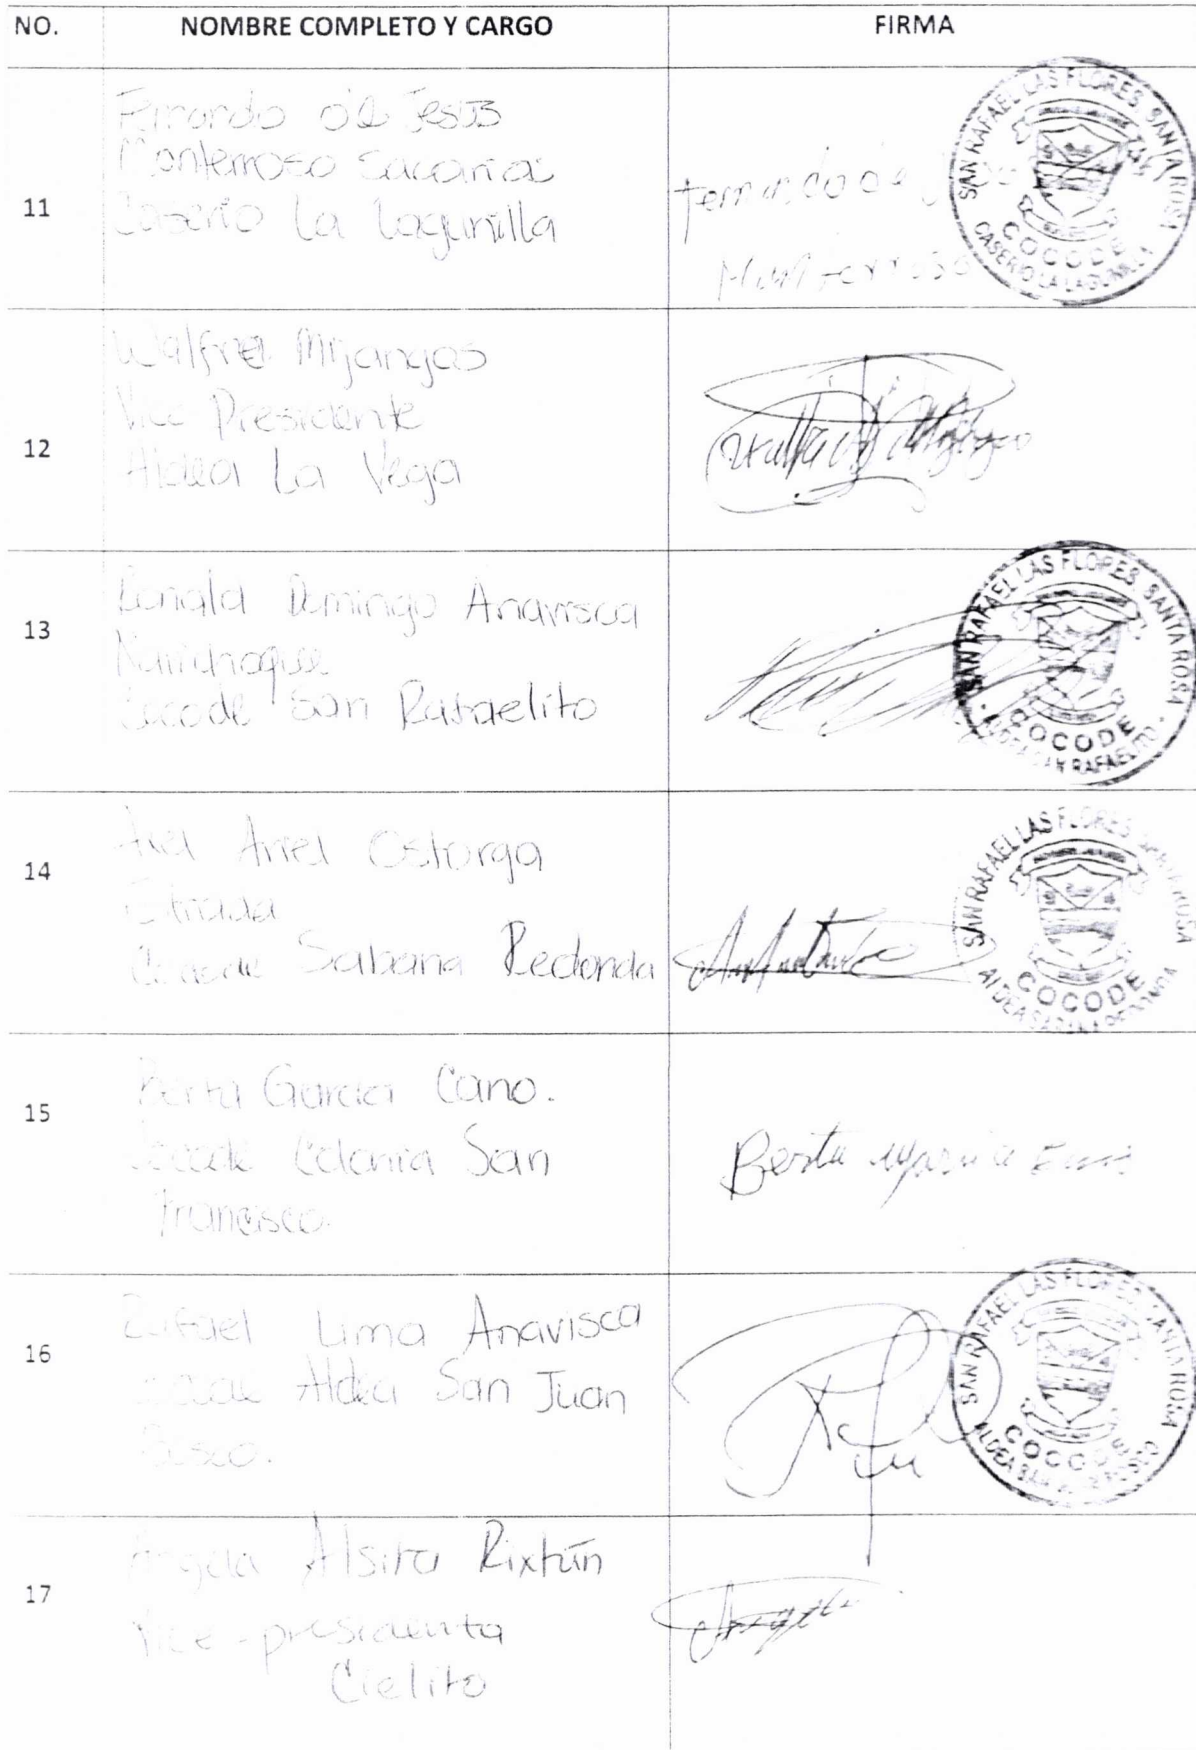 NO. NOMBRE COMPLETO Y CARGO FIRMA
11
de Jesus
Monterroso
Caserio La Lagunilla
Monterroso
SAN RAFAEL LAS FLORES SANTA ROSA
COCODE
CASERIO LA LAGUNILLA
12
Walfre Mijangos
Vice Presidente
Aldea La Vega
13
Ronald Domingo Anavisca
Cocode San Rafaelito
SAN RAFAEL LAS FLORES SANTA ROSA
COCODE
ALDEA SAN RAFAELITO
14
Ariel Ostorga
Estrada
Cocode Sabana Redonda
SAN RAFAEL LAS FLORES SANTA ROSA
COCODE
ALDEA SABANA REDONDA
15
Berta Garcia Cano.
Cocode Colonia San
Francisco.
Berta
16
Rafael Lima Anavisca
Cocode Aldea San Juan
Bosco.
SAN RAFAEL LAS FLORES SANTA ROSA
COCODE
ALDEA SAN JUAN BOSCO
17
Angela Alsira Rixtún
Vice-presidenta
Cielito